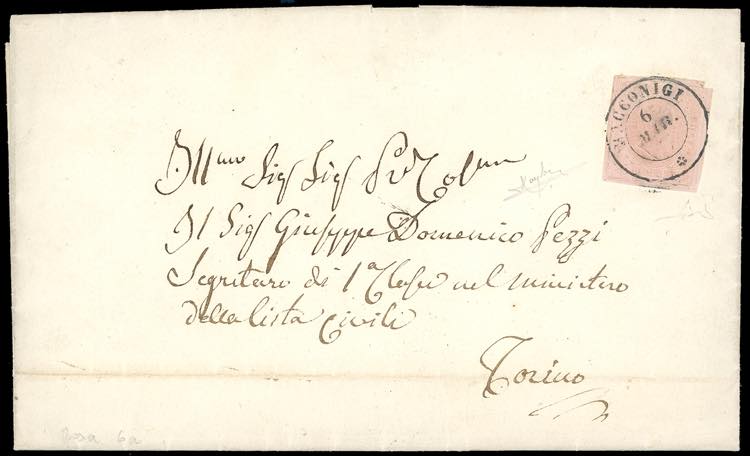 RACCONIGI
6
MAR.
Ill.mo Sig Sig P.e Col.mo
Il Sig Giuseppe Domenico Pezzi
Segritaro di 1.a Classe nel Ministero
della lista Civili
Torino
Rosa 6a